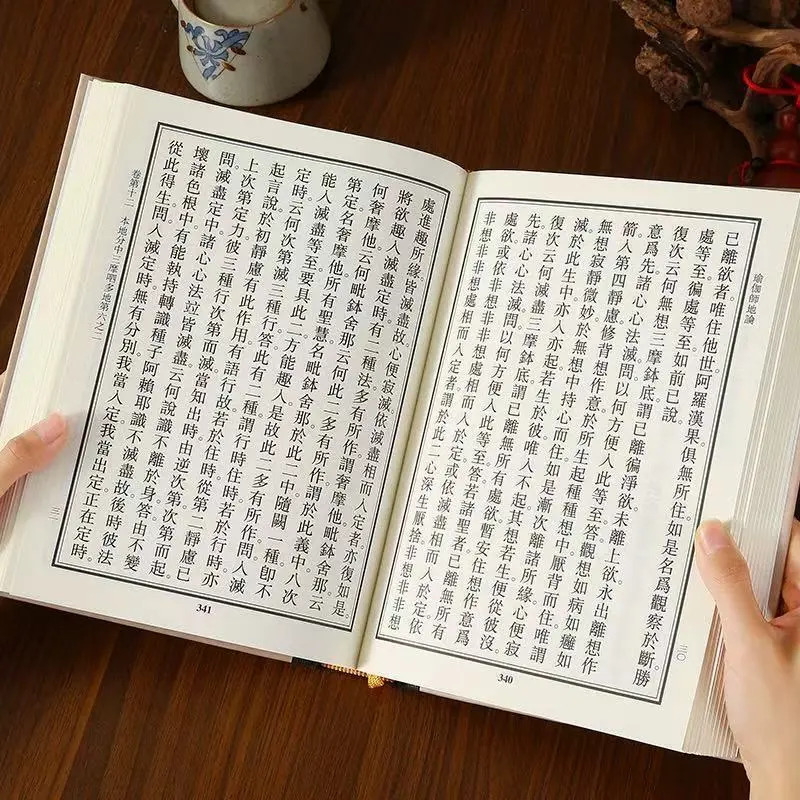 瑜伽師地論
三〇
已離欲者。唯住他世阿羅漢果俱無所住。如是名爲觀察於斷。勝
處等至徧處等至。如前已說。
復次云何無想三摩鉢底。謂已離徧淨欲。未離上欲。永出離想作
意爲先。諸心心法滅。問以何方便入此等至。答觀想如病如癰如
箭。入第四靜慮修背想作意。於所生起種種想中厭背而住。唯謂
無想寂靜微妙。於無想中持心而住。如是漸次離諸所緣。心便寂
滅。於此生中亦入亦起。若生於彼唯入不起。其想若生便從彼沒。
復次云何滅盡三摩鉢底。謂已離無所有處欲。暫安住想作意爲
先。諸心心法滅。問以何方便入此等至。答若諸聖者已離無所有
處欲。或依非想非非想處相而入於定。或依滅盡相而入於定。依
非想非非想處相而入定者。謂於此二心深生厭捨。非想非非想
340
處進趣所緣皆滅盡故。心便寂滅。依滅盡相而入定者。亦復如是。
將欲趣入滅盡定時。有二種法多有所作。謂奢摩他毗鉢舍那。云
何奢摩他。云何毗鉢舍那。云何此二多有所作。謂於此義中。八次
第定名奢摩他。所有聖慧名毗鉢舍那。於此二中隨闕一種。卽不
能入滅盡等至。要具此二方能趣入。是故此二多有所作。問入滅
定時云何次第滅三種行。答此有二種。謂行時住時。若於行時亦
起言說。於初靜慮有此作用有語行故。若於住時從第二靜慮已
上次第定力。彼三種行次第而滅。當知出時由逆次第次第而起。
問滅盡定中諸心心法竝皆滅盡。云何說識不離於身。答由不變
壞諸色根中。有能執持轉識種子阿賴耶識不滅盡故。後時彼法
從此得生。問入滅定時。無有分別我當入定我當出定。正在定時。
卷第十二 本地分中三摩呬多地第六之二
三一
341